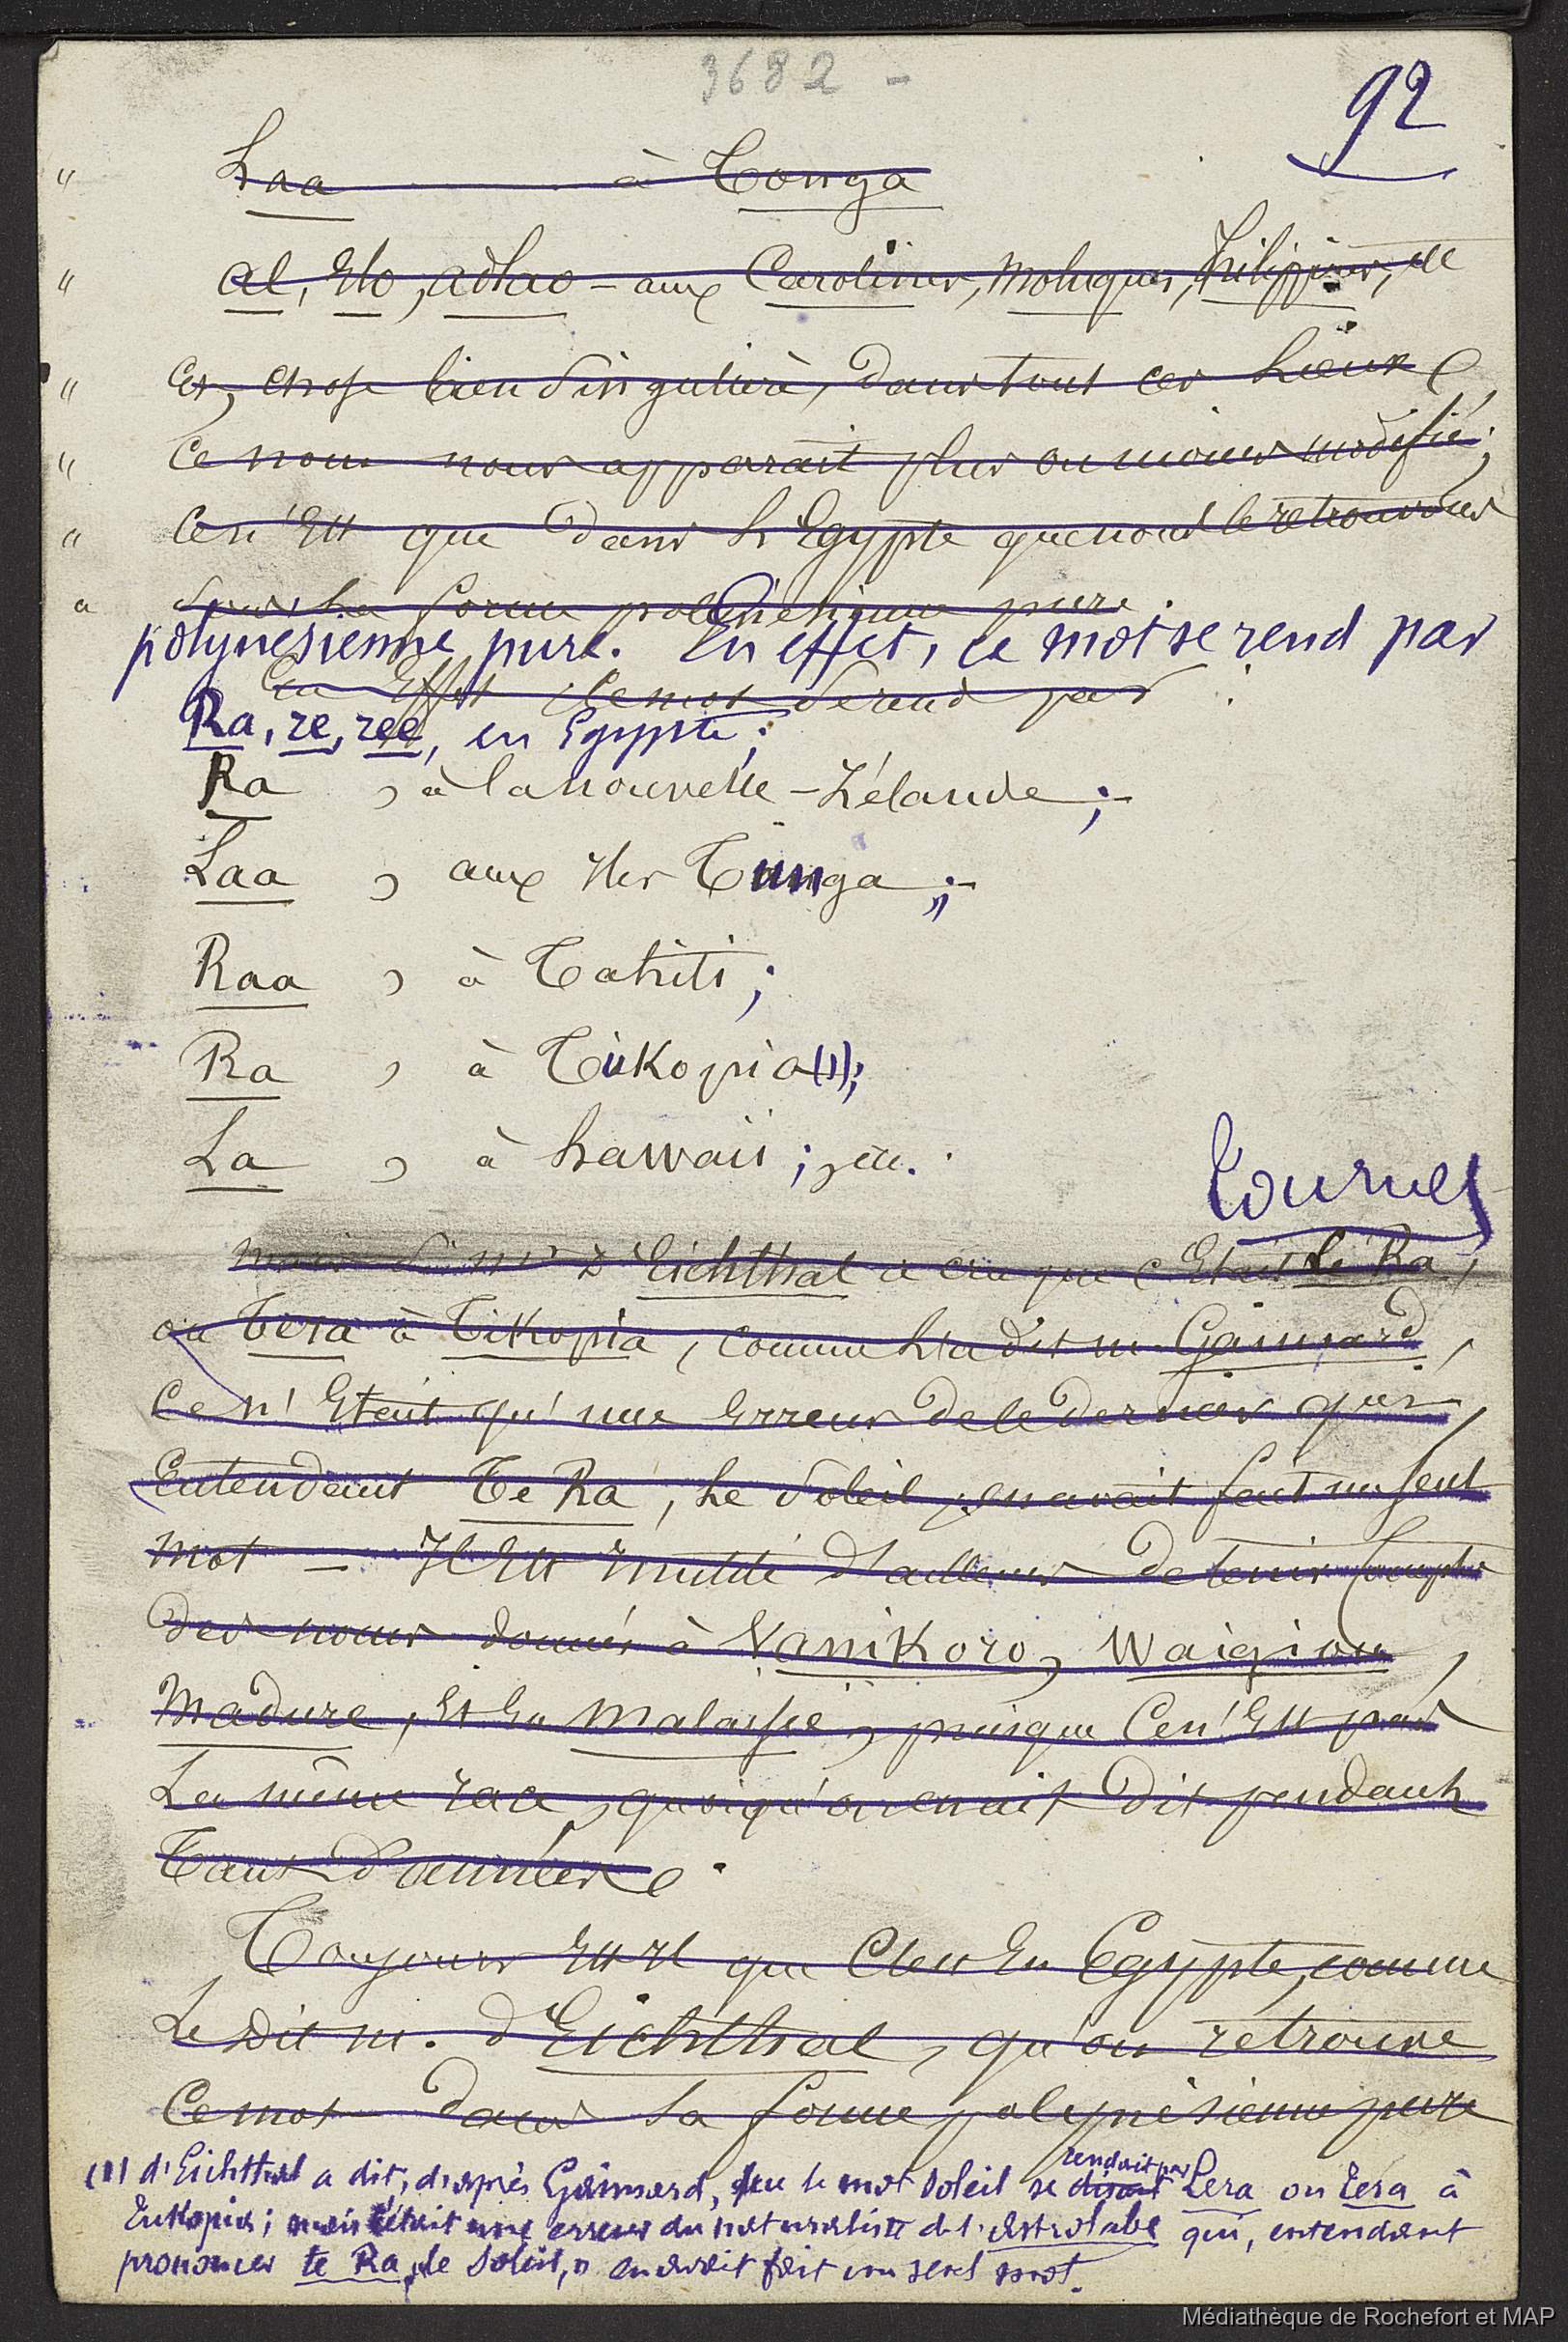 3682 -
92
" Laa à Tonga
" al, Elo, adlao - aux Carolines, Moluques, Filippines, etc
" Et, chose bien Singulière, dans tout ces Lieux
" Ce nom nous apparait plus ou moins modifié;
" Ce n'Est que dans L'Egypte que nous le retrouvons
" Sous La forme polynésienne pure.
polynésienne pure. En effet, ce mot se rend par
En Effet ce mot Se rend par :
Ra, re, ree, en Egypte;
Ra , à la nouvelle-Zélande ;-
Laa , aux Iles Tunga ;-
Raa , à Tahiti ;
Ra , à Tukopia (1);
La , à hawaii ; , etc.
Tournez
Mais Si Mr D'Eichthal a cru que c'Etait Le Ra,
ou Tera à Tikopia, comme L'a dit m. Gaimard,
Ce n'Etait qu'une Erreur de ce dernier qui,
Entendant Te Ra, Le Soleil, en avait fait un Seul
mot - Il Est Inutile d'ailleurs de tenir compte
des noms donnés à Vanikoro, Waigiou,
Madure, Et En Malaisie, puisque Ce n'Est pas
La même race, quoiqu'on en ait Dit pendant
Tant D'années.
Toujours Est Il que C'est En Egypte, comme
Le Dit m. d'Eichthal, qu'on retrouve
Ce mot dans Sa forme polynésienne pure
rendait par
(1) d'Eichthal a dit, d'après Gaimard, que le mot Soleil se disait Lera ou Tera à
Tukopia; mais c'était une erreur du naturaliste de l'astrolabe qui, entendant
prononcer te Ra, "le Soleil," en avait fait un seul mot.
Médiathèque de Rochefort et MAP